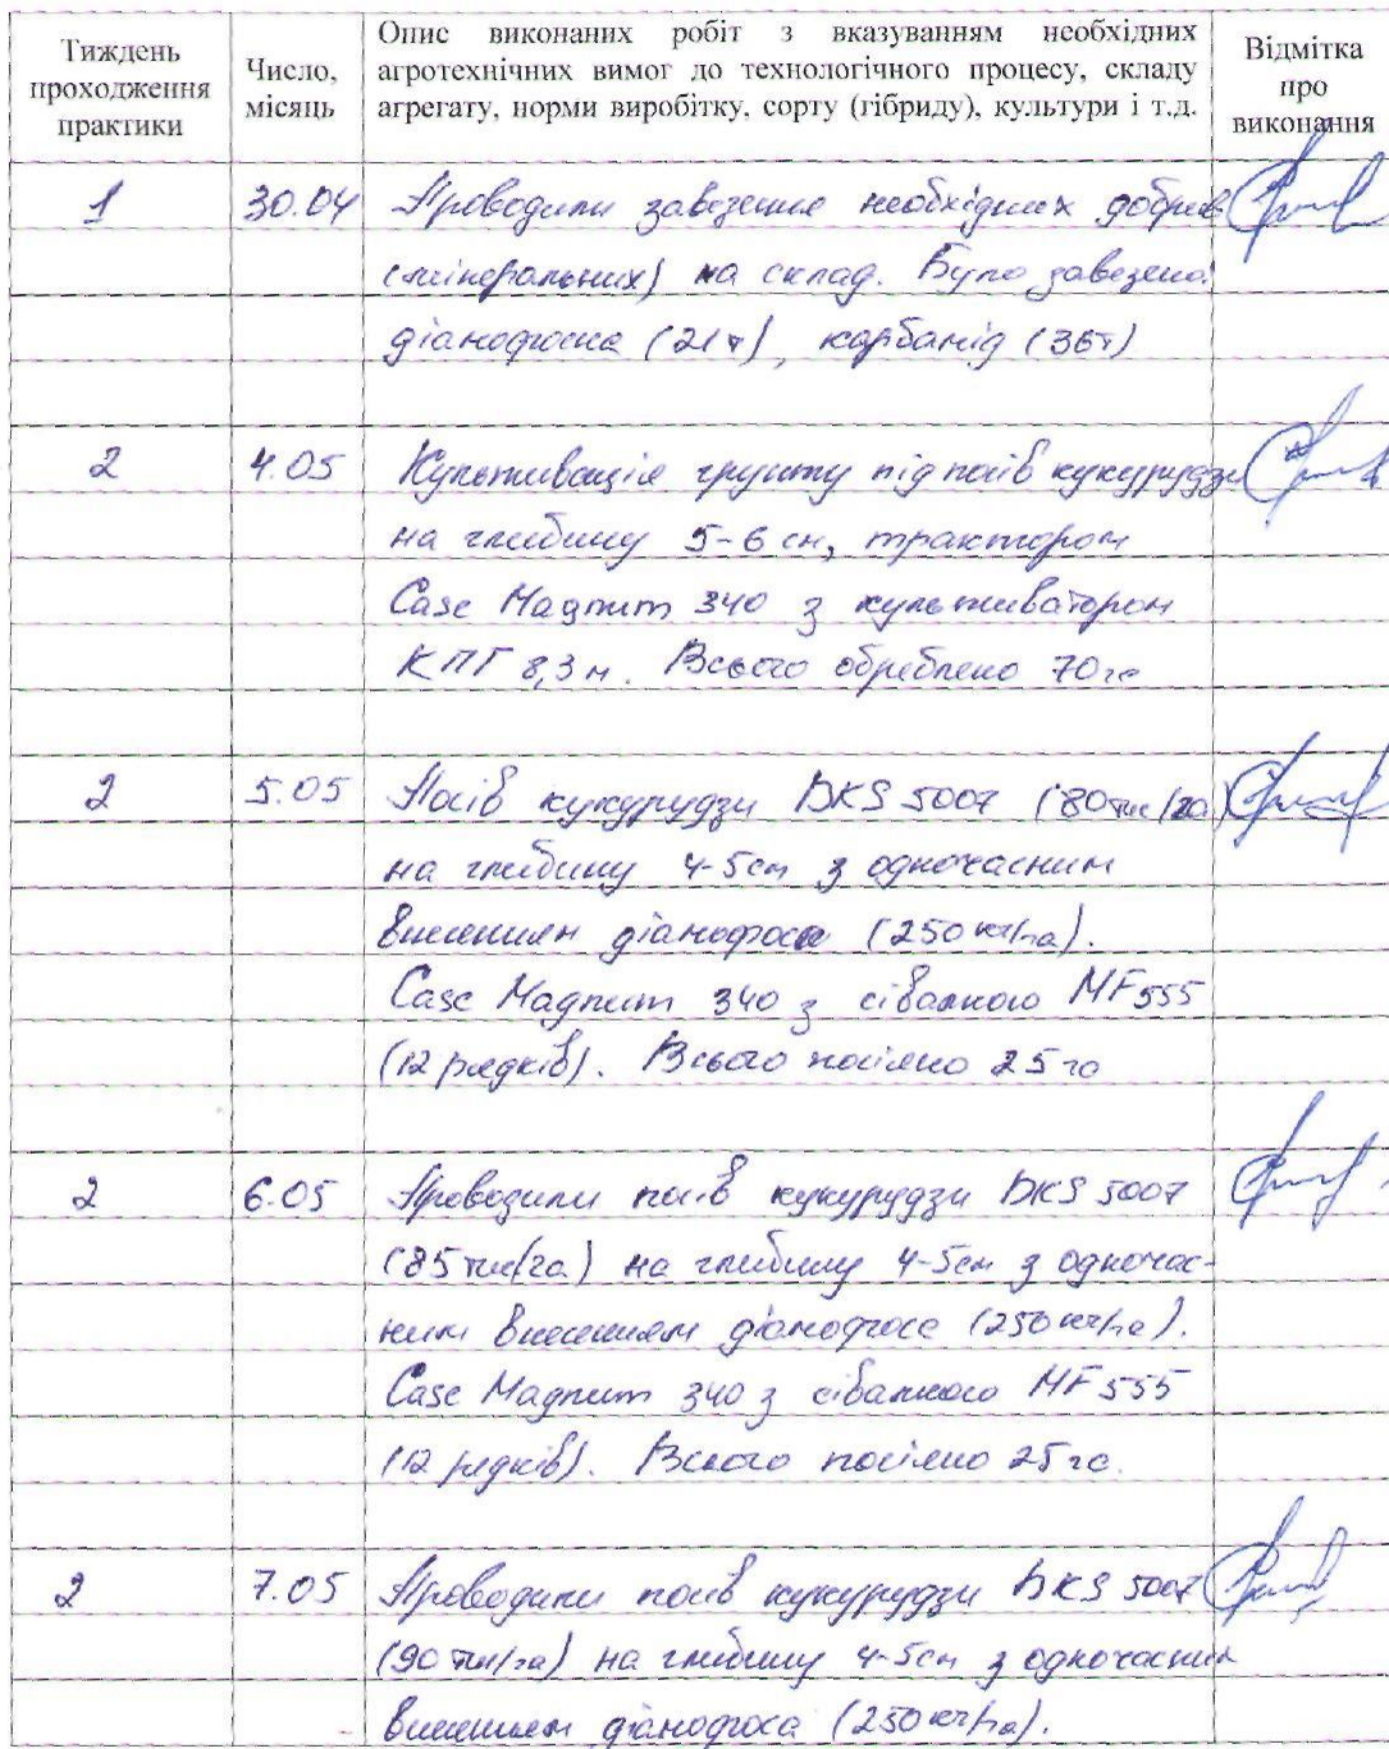 Тиждень проходження практики
Число, місяць
Опис виконаних робіт з вказуванням необхідних
агротехнічних вимог до технологічного процесу, складу
агрегату, норми виробітку, сорту (гібриду), культури і т.д.
Відмітка про виконання
1 30.04 Проводили завезення необхідних добрив
(мінеральних) на склад. Було завезено:
діамофоска (21т), карбамід (36т)
2 4.05 Культивація грунту під посів кукурудзи
на глибину 5-6 см, трактором
Case Magnum 340 з культиватором
КПГ 8,3 м. Всього оброблено 70 га
2 5.05 Посів кукурудзи DKS 5007 (80 тис/га)
на глибину 4-5см з одночасним
внесенням діамофоса (250 кг/га).
Case Magnum 340 з сівалкою MF 555
(12 рядків). Всього посіяно 25 га
2 6.05 Проводили посів кукурудзи DKS 5007
(85 тис/га) на глибину 4-5см з одночас-
ним внесенням діамофоса (250 кг/га).
Case Magnum 340 з сівалкою MF 555
(12 рядків). Всього посіяно 25 га.
2 7.05 Проводили посів кукурудзи DKS 5007
(90 тис/га) на глибину 4-5см з одночасним
внесенням діамофоса (250 кг/га).